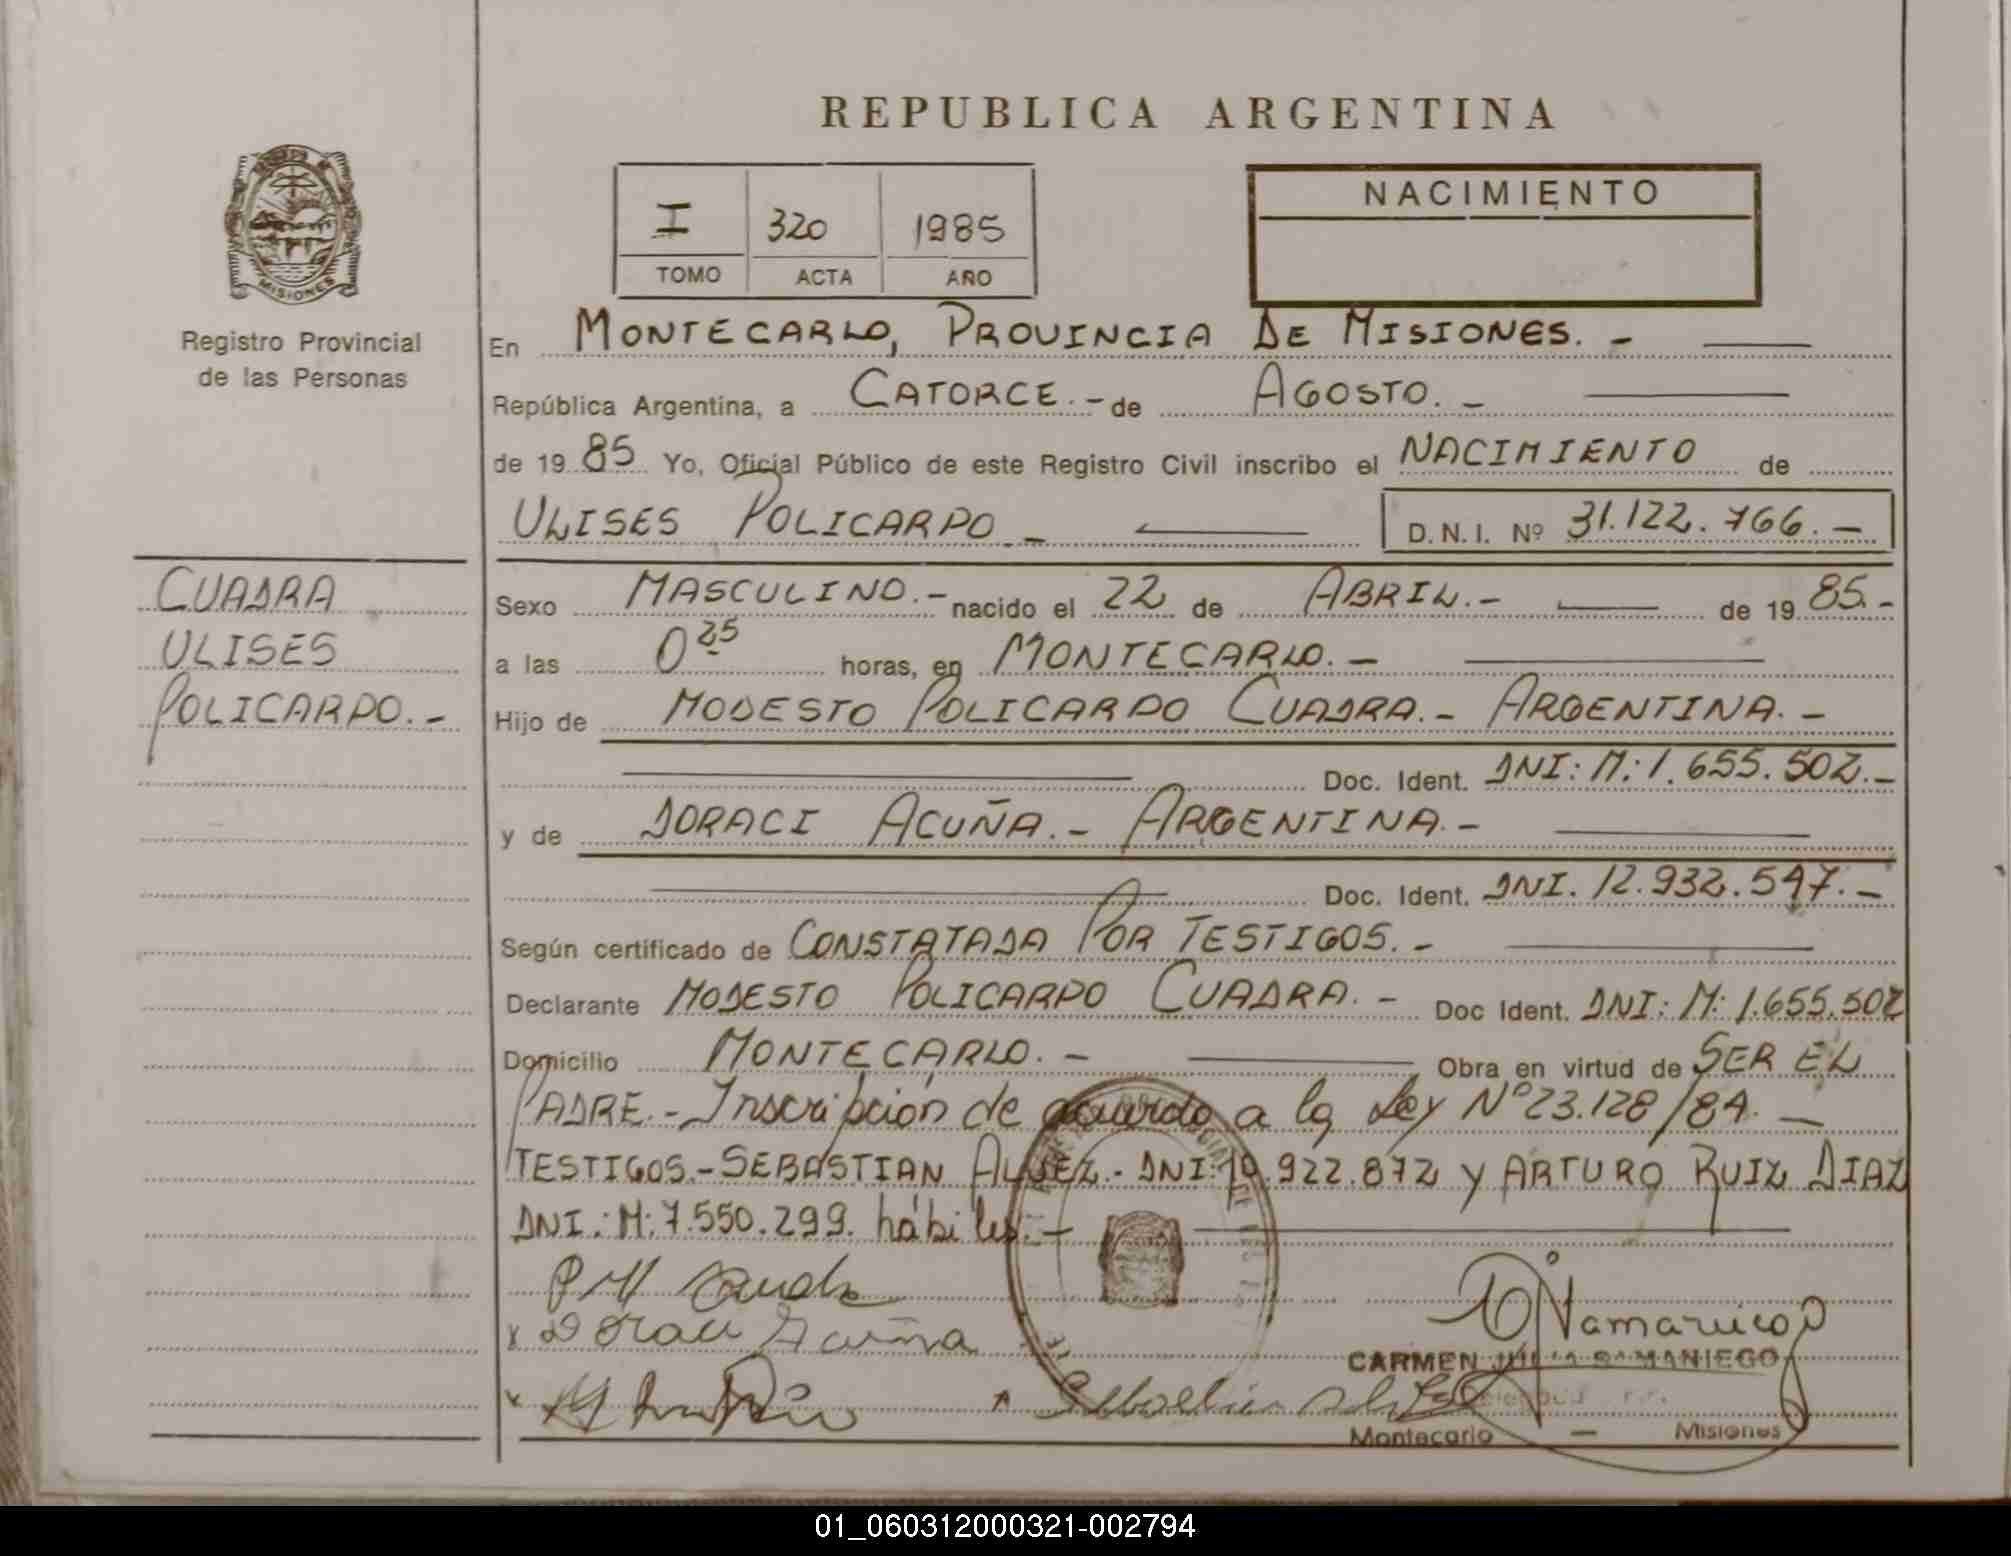 REPUBLICA ARGENTINA
MISIONES
Registro Provincial
de las Personas
I 320 1985
TOMO ACTA AÑO
NACIMIENTO
En MONTECARLO, PROVINCIA DE MISIONES. -
República Argentina, a CATORCE. - de AGOSTO. -
de 19 85 Yo, Oficial Público de este Registro Civil inscribo el NACIMIENTO de
ULISES POLICARPO - D. N. I. Nº 31.122.766. -
CUADRA
ULISES
POLICARPO. -
Sexo MASCULINO. - nacido el 22 de ABRIL. - de 19 85. -
a las 0 25 horas, en MONTECARLO. -
Hijo de MODESTO POLICARPO CUADRA. - ARGENTINA. -
Doc. Ident. DNI: M: 1.655.502. -
y de DORACI ACUÑA. - ARGENTINA. -
Doc. Ident. DNI. 12.932.547. -
Según certificado de CONSTATADA POR TESTIGOS. -
Declarante MODESTO POLICARPO CUADRA. - Doc Ident. DNI: M: 1.655.502
Domicilio MONTECARLO. - Obra en virtud de SER EL
PADRE. - Inscripción de acuerdo a la Ley Nº 23.128/84. -
TESTIGOS. - SEBASTIAN ALVEZ. - DNI: 19.922.872 y ARTURO RUIZ DIAZ
DNI: M: 7.550.299. hábiles. -
Doraci Acuña
CARMEN JULIA SAMANIEGO
Montecarlo - Misiones
01_060312000321-002794